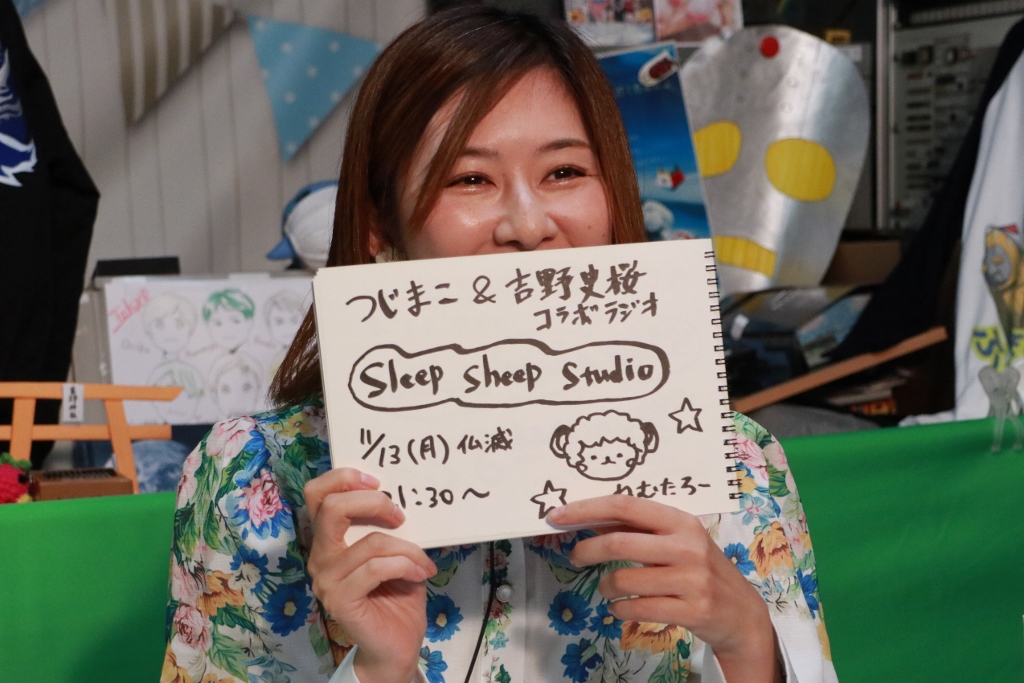 つじまこ & 吉野史桜
コラボラジオ
Sleep Sheep Studio
11/13(月) 仏滅
21:30〜
ねむたろー